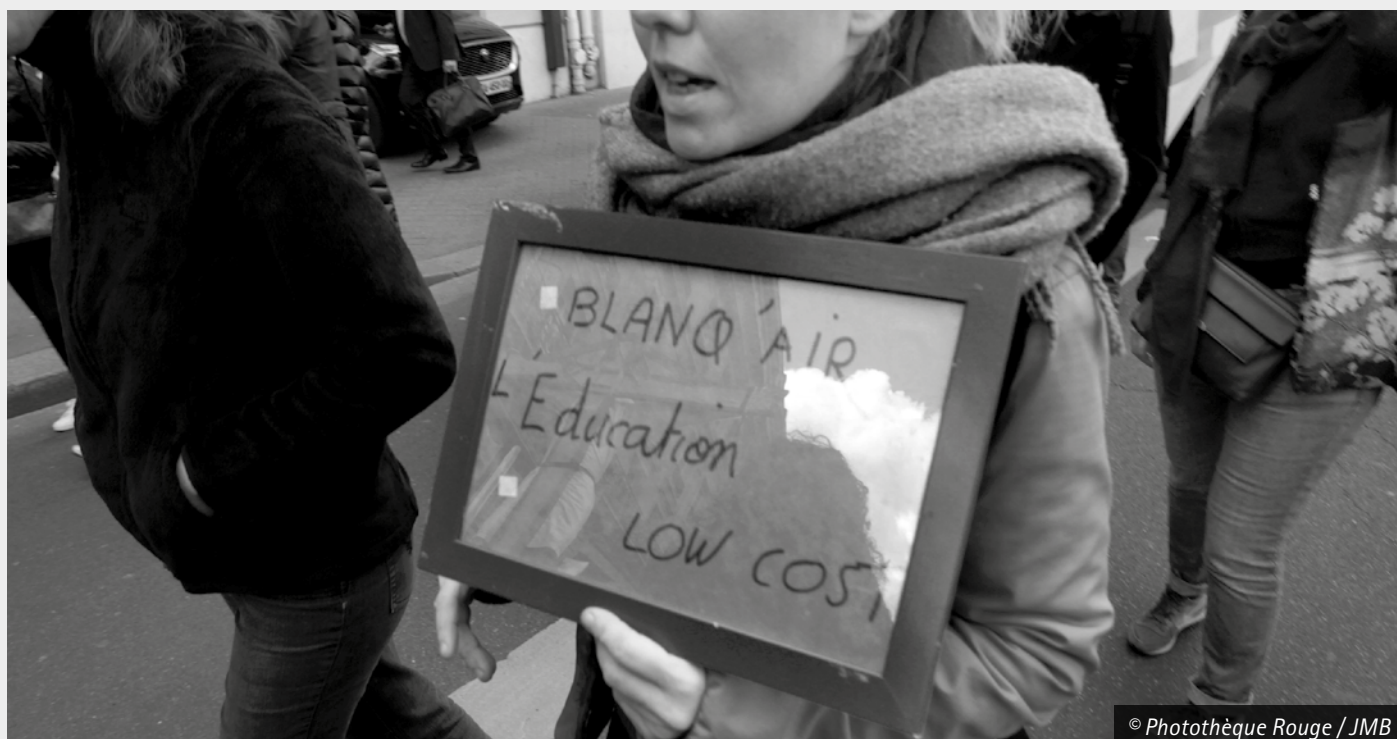 BLANQ'AIR
L'Éducation
LOW COST
© Photothèque Rouge / JMB